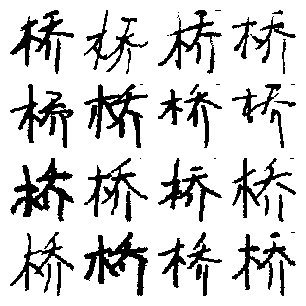 桥桥桥桥
桥桥桥桥
桥桥桥桥
桥桥桥桥